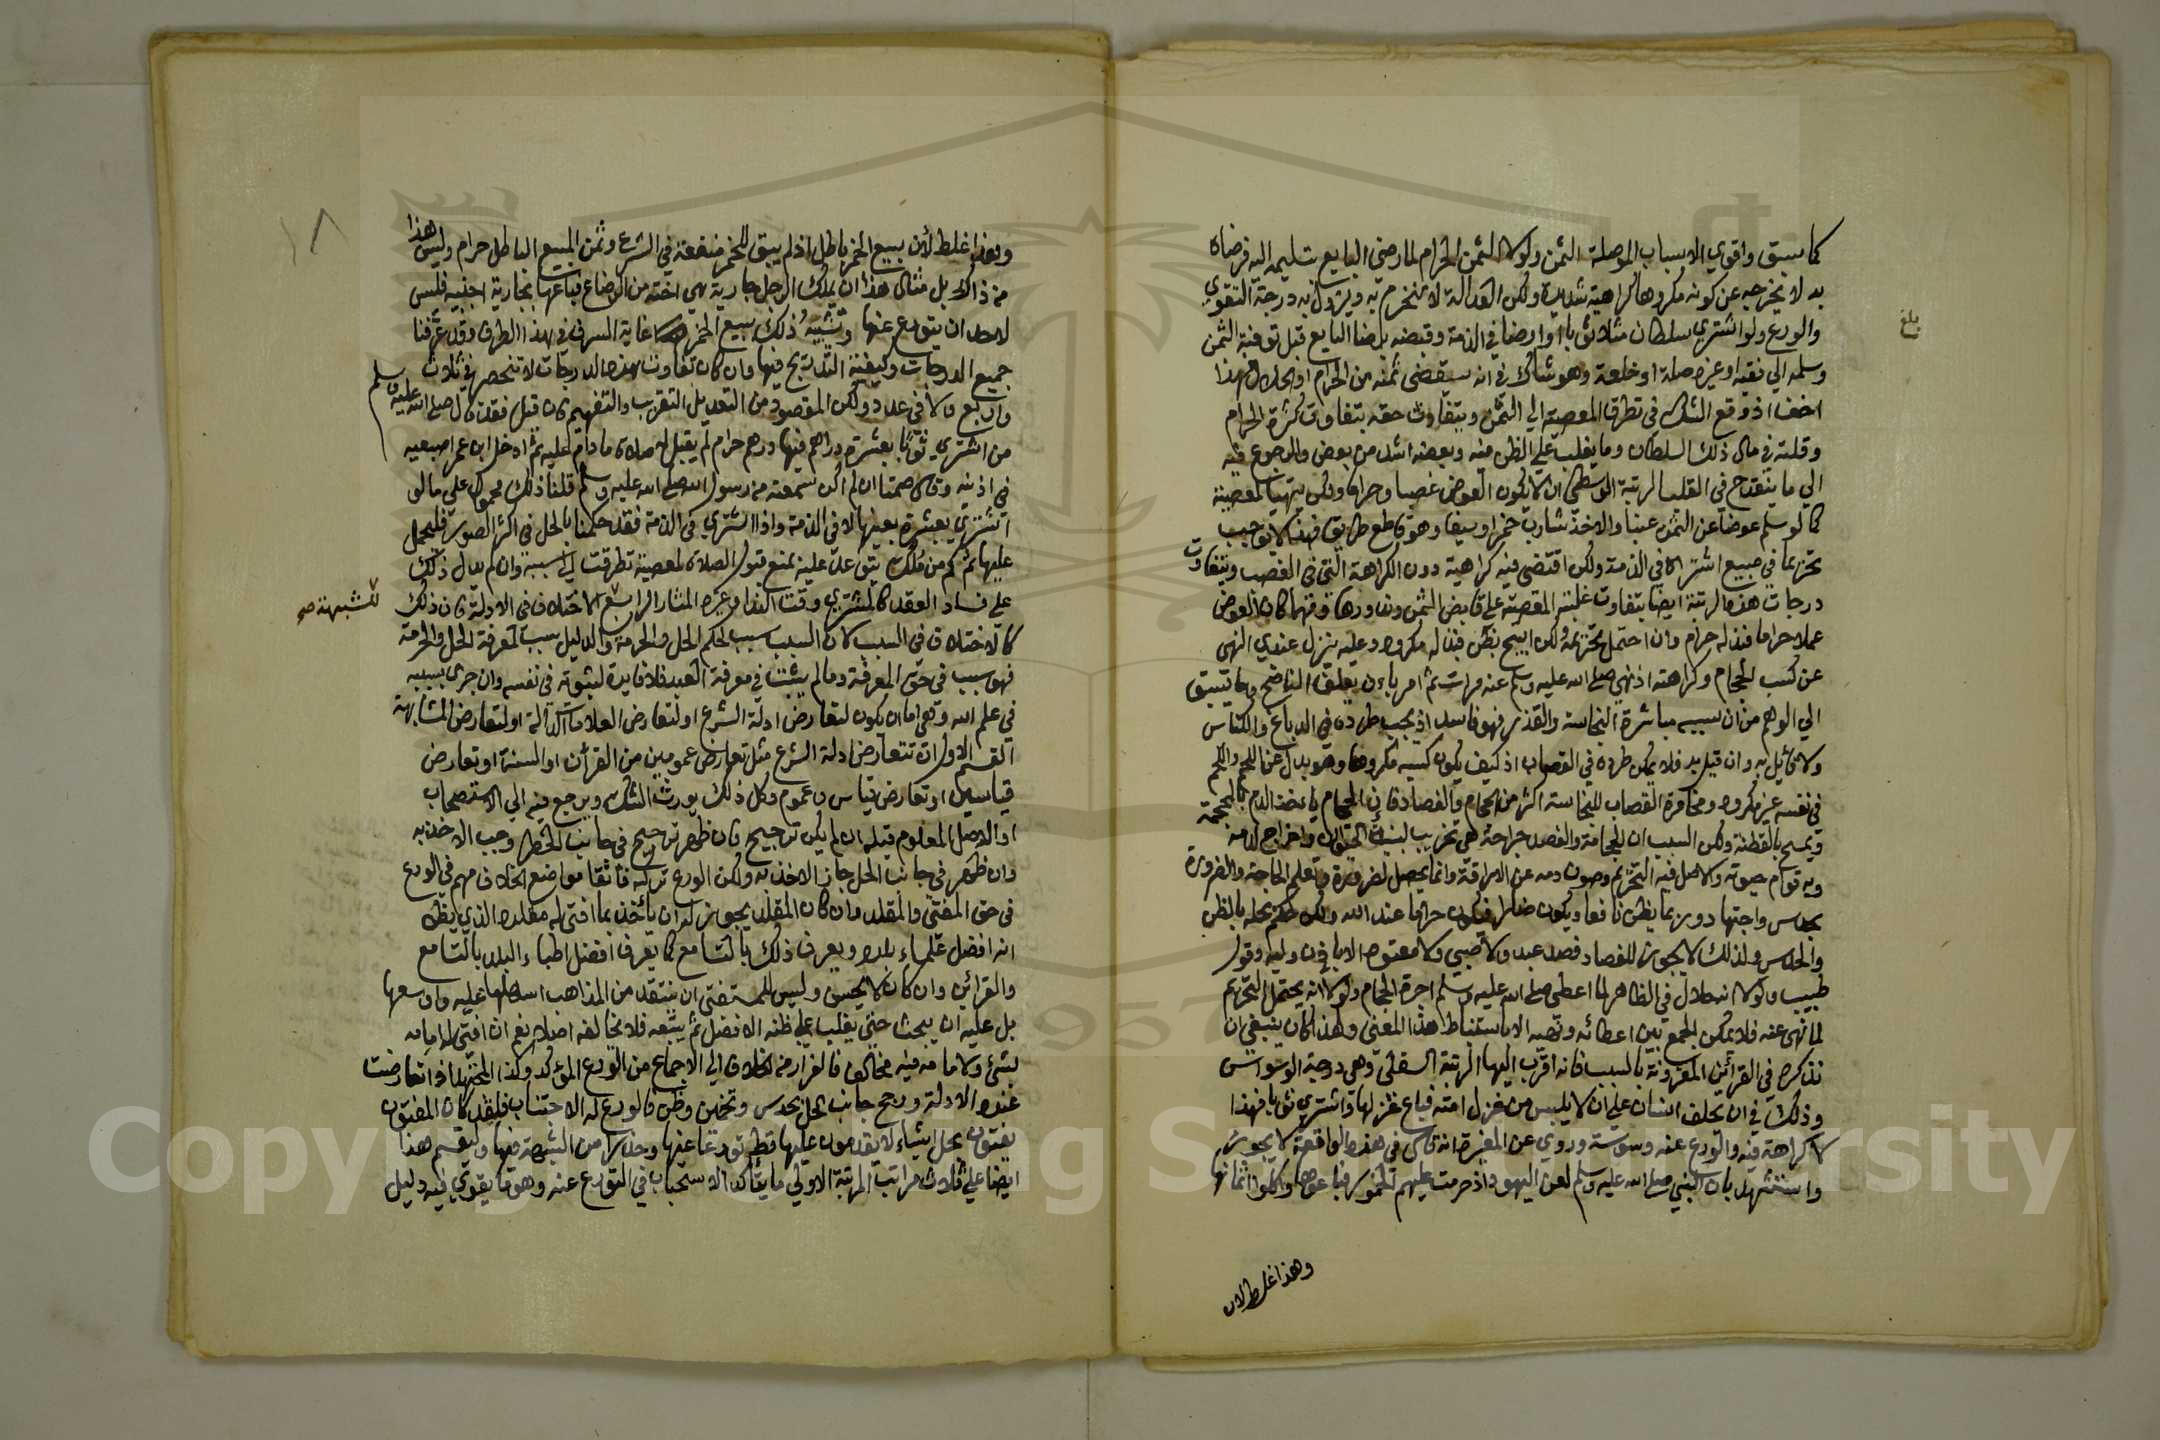 كما سبق واقوي الاسباب الموصلة الثمن ولولا الثمن الحرام لما رضي البايع بتسليمه اليه فرضاه
به لا يخرجه عن كونه مكروها كراهية شديدة ولكن العدالة لا تنخرم به ويزول به درجة التقوي
والورع ولو اشتري سلطان مثلا ثوبا او ارضا في الذمة وقبضه برضا البايع قبل توفية الثمن
وسلمه الي فقيه او غيره صلة او خلعة وهو شاك في انه سيقضي ثمنه من الحرام او الحلال فهذا
اخف اذ وقع الشك في تطرق المعصية الي الثمن ويتفاوت خفه بتفاوت كثرة الحرام
وقلته في مال ذلك السلطان وما يغلب علي الظن منه وبعضه اشد من بعض والرجوع فيه
الي ما ينقدح في القلب الرتبة الوسطي ان لا يكون العوض غصبا وحراما ولكن يتهيأ لمعصية
كما لو سلم عوضا عن الثمن عنبا والاخذ شارب خمر او سيفا وهو قاطع طريق فهذا لا يوجب
تحريما في مبيع اشتراه في الذمة ولكن اقتضي فيه كراهية دون الكراهة التي في الغصب ويتفاوت
درجات هذه الرتبة ايضا بتفاوت غلبة المعصية علي قابض الثمن وندورها ومهما كان العوض
عملا حراما فبذله حرام وان احتمل تحريمه ولكن ابيح بظن فبذله مكروه وعليه ينزل عندي النهي
عن كسب الحجام وكراهته اذ نهي صلي الله عليه وسلم عنه مرات ثم امر بان يعلف الناضح وما يسبق
الي الوهم من ان سببه مباشرة النجاسة والقذر فهو فاسد اذ يجب طرده في الدباغ والكناس
ولا قايل به وان قيل به فلا يمكن طرده في القصاب اذ كيف يكون كسبه مكروها وهو بدل عن اللحم واللحم
في نفسه غير مكروه ومخامرة القصاب للنجاسة اكثر من الحجام والفصاد فان الحجام ياخذ الدم بالمحجمة
ويمسح بالقطنة ولكن السبب ان الحجامة والفصد جراحة هي تخريب لبنية الحيوان واخراج لدمه
وبه قوام حيوته والاصل فيه التحريم وصون دمه عن الاراقة وانما يحصل لضرورة وتعلم الحاجة والضرورة
بحدس واجتهاد وربما يظن نافعا ويكون ضارا فيكون حراما عند الله ولكن حكم بحله بالظن
والحدس ولذلك لا يجوز للفصاد فصد عبد ولا صبي ولا معتوه الا باذن وليه وقول
طبيب ولولا انه حلال في الظاهر لما اعطي صلي الله عليه وسلم اجرة الحجام ولولا انه يحتمل التحريم
لما نهي عنه فلا يمكن الجمع بين اعطائه ونهيه الا باستنباط هذا المعني وهذا كان ينبغي ان
نذكره في القرائن المقرونة بالسبب فانه اقرب اليها الرتبة السفلي وهي درجة الوسواس
وذلك في ان يحلف انسان علي ان لا يلبس من غزل امته فباع غزلها واشتري ثوبا فهذا
لا كراهة فيه والتورع عنه وسوسة وروي عن المغيرة انه قال في هذه الواقعة لا يجوز
واستشهد بان النبي صلي الله عليه وسلم لعن اليهود اذ حرمت عليهم الخمور فباعوها واكلوا اثمانها
وهذا غلط لان
بلغ
وهذا غلط لان بيع الخمر باطل اذ لم يبق للخمر منفعة في الشرع وثمن المبيع الباطل حرام وليس هذا
من ذلك بل مثال هذا ان يملك الرجل جارية هي اخته من الرضاع فباعها بجارية اجنبية فليس
لاحد ان يتورع عنها وتشبيه ذلك ببيع الخمر غاية السرف في هذا الطرف وقد عرفنا
جميع الدرجات وكيفية التدريج فيها وان كان تفاوت هذه الدرجات لا تنحصر في ثلاث
واربع ولا في عدد ولكن المقصود من التعديل التقريب والتفهيم فان قيل فقد قال صلي الله عليه وسلم
من اشتري ثوبا بعشرة دراهم فيها درهم حرام لم يقبل له صلاة ما دام عليه ثم ادخل ابن عمر اصبعيه
في اذنيه وقال صمتا ان لم اكن سمعته من رسول الله صلي الله عليه وسلم قلنا ذلك محمول علي ما لو
اشتري بعشرة بعينها لا في الذمة واذا اشتري في الذمة فقد حكمنا بالحل في اكثر الصور فليحمل
عليها ثم كم من ملك يتوعد عليه بمنع قبول الصلاة لمعصية تطرقت الي سببه وان لم يدل ذلك
علي فساد العقد كالمشتري وقت الندا وغيره المثار الرابع الاختلاف في الادلة فان ذلك
كالاختلاف في السبب لان السبب سبب لحكم الحل والحرمة والدليل سبب لمعرفة الحل والحرمة
فهو سبب في حق المعرفة وما لم يثبت في معرفة العبد فلا فايدة لثبوته في نفسه وان جري بسببه
في علم الله وهو اما ان يكون لتعارض ادلة الشرع او لتعارض العلامات الدالة او لتعارض المشابهة
القسم الاول ان تتعارض ادلة الشرع مثل تعارض عمومين من القرآن او السنة او تعارض
قياسين او تعارض قياس وعموم وكل ذلك يورث الشك ويرجع فيه الي الاستصحاب
او الاصل المعلوم قبله ان لم يكن ترجيح فان ظهر ترجيح في جانب الحظر وجب الاخذ به
وان ظهر في جانب الحل جاز الاخذ به ولكن الورع تركه فاتقا مواضع الخلاف مهم في الورع
في حق المفتي والمقلد وان كان المقلد يجوز له ان يأخذ بما افتي له مقلده الذي يظن
انه افضل علماء بلده ويعرف ذلك بالتسامع كما يعرف افضل اطباء البلد بالتسامع
والقرائن وان كان لا يحسن وليس للمستفتي ان ينتقد من المذاهب اسهلها عليه واوسعها
بل عليه ان يبحث حتي يغلب علي ظنه الافضل ثم يتبعه فلا يخالفه اصلا نعم ان افتي له امامه
بشيء ولامامه فيه مخالف فالفرار من الخلاف الي الاجماع من الورع المؤكد وكذا المجتهد اذا تعارضت
عنده الادلة ورجح جانب الحل بحدس وتخمين وظن فالورع له الاجتناب فلقد كان المفتون
يفتون بحل اشياء لا يقدمون عليها قط تورعا عنها وحذرا من الشبهة فيها ولنقسم هذا
ايضا علي ثلاث مراتب المرتبة الاولي ما يتأكد الاستحباب في التورع عنه وهو ما يقوي فيه دليل
للشبهة صح
Copyright © King Saud University
1957